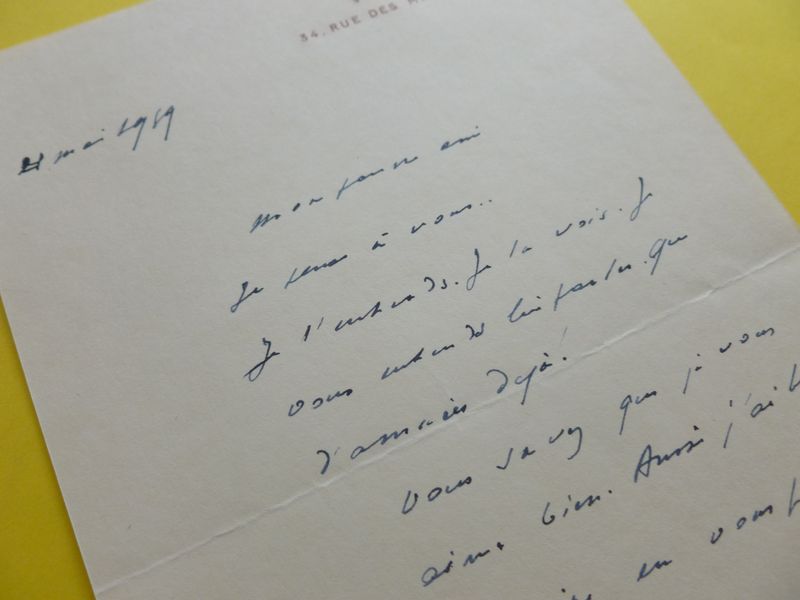 34, RUE DES
mai 1959
mon pauvre ami
Je pense à vous..
Je l'entends. Je la vois. Je
vous entends lui parler. Que
d'années déjà!
Vous savez que je vous
aime bien. Aussi j'ai
en vous